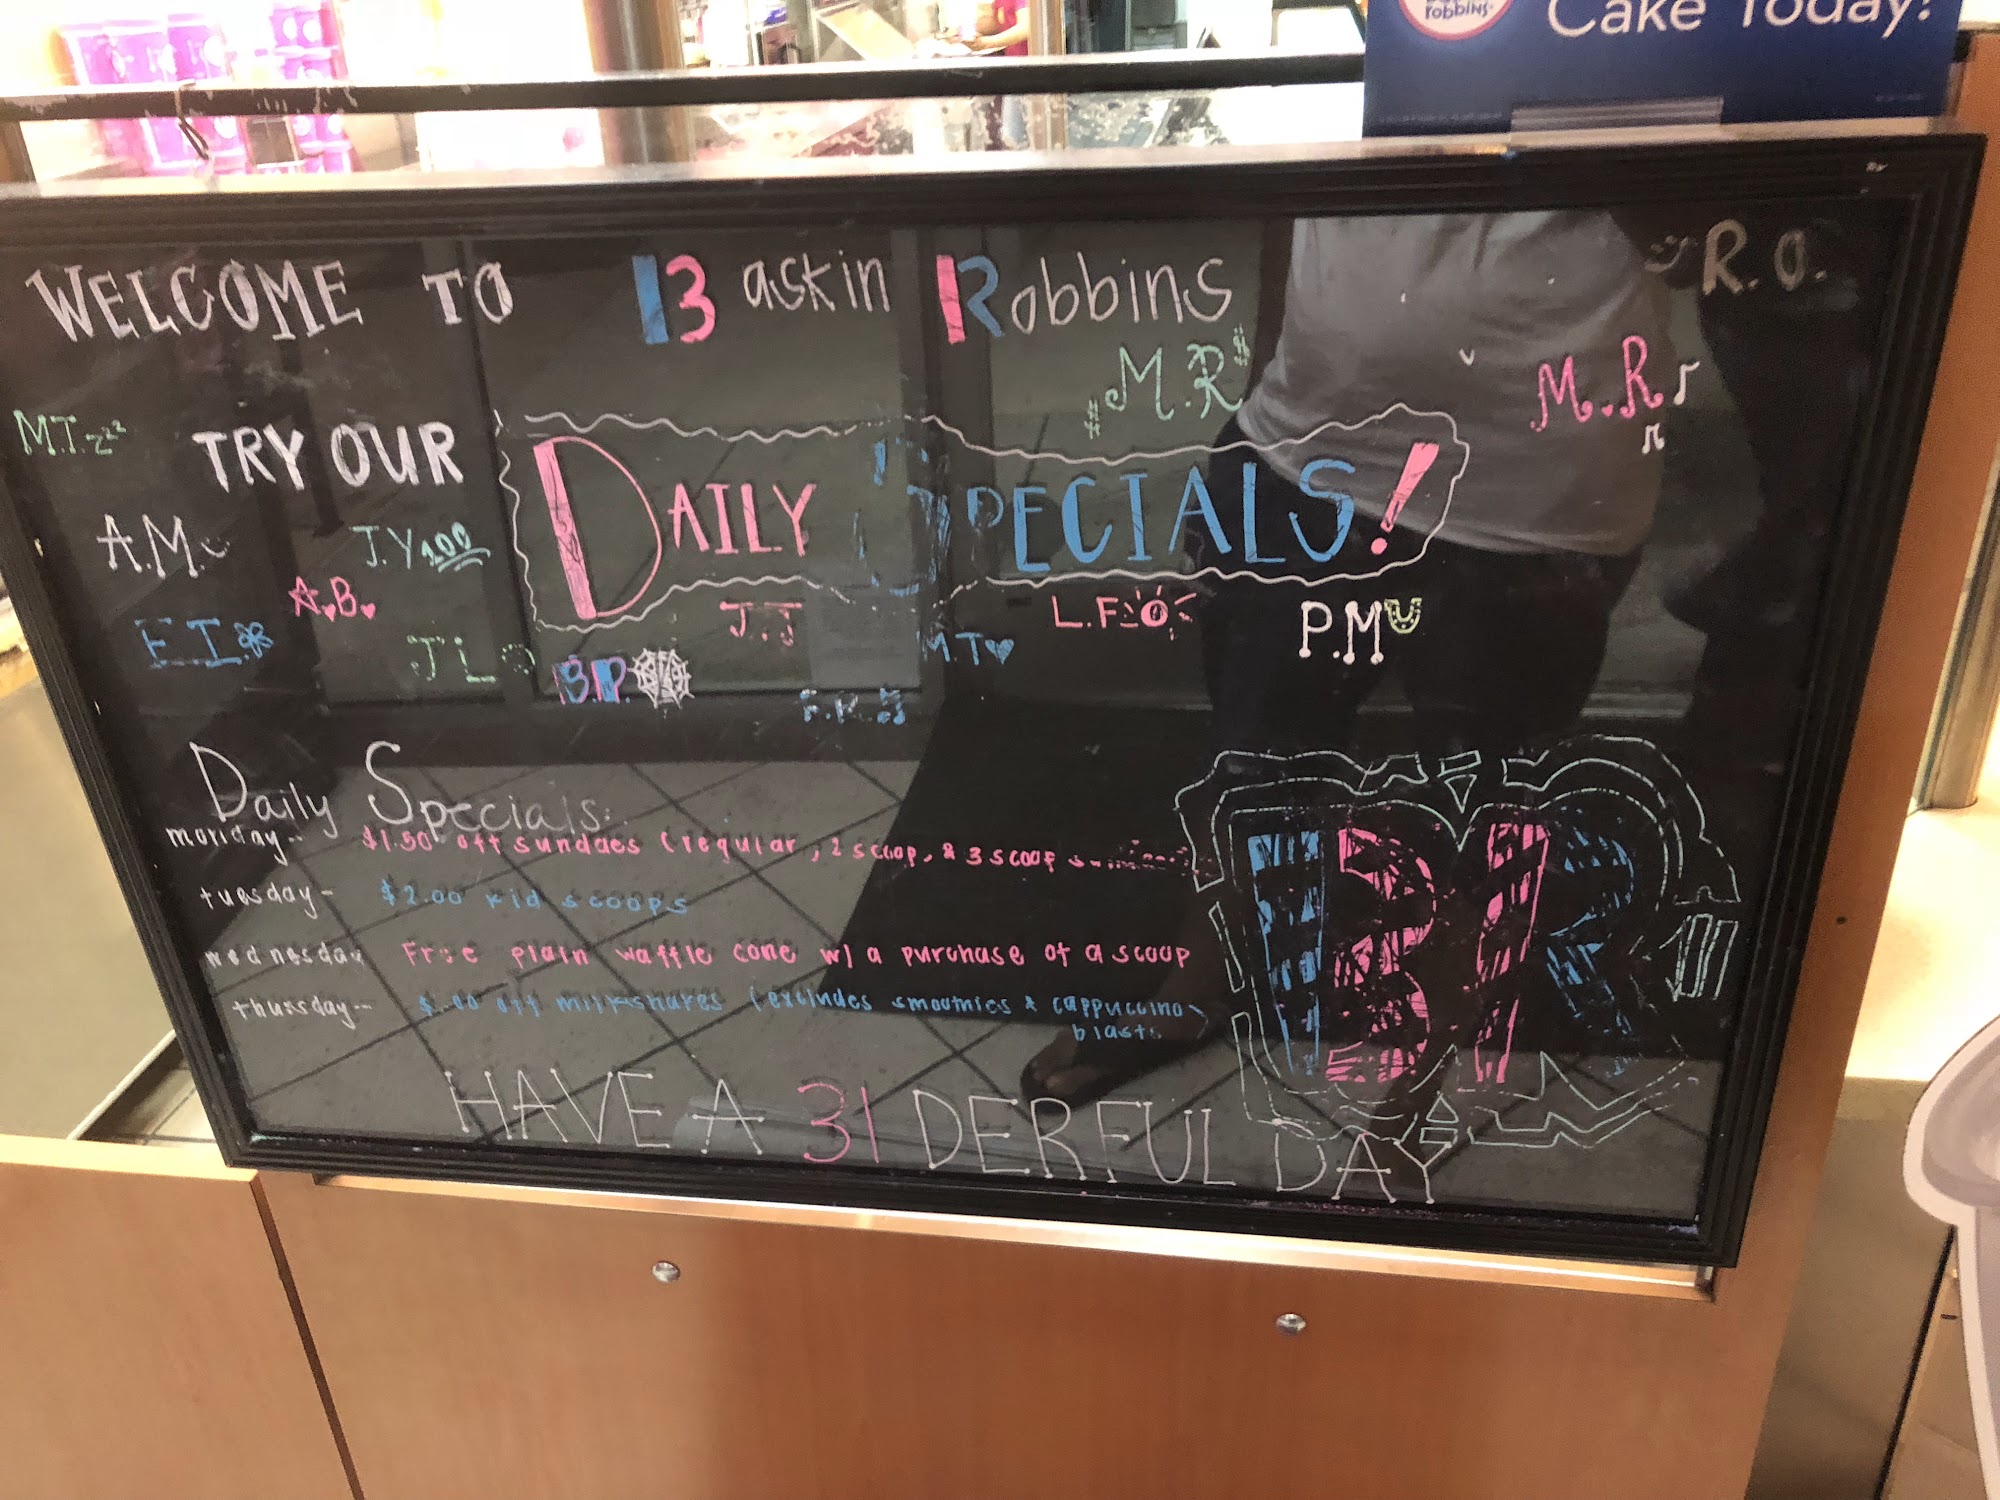 robbins
Cake Today!
WELCOME TO Baskin Robbins
R.O.
M.R
M.R
M.T. zzz
TRY OUR DAILY SPECIALS!
A.M.
J.Y 100
A.B.
E.I.
J L
B.P.
J.J
M.T
L.F
P.M
Daily Specials:
monday-- $1.50 off sundaes (regular, 2 scoop, & 3 scoop
tuesday- $2.00 kid scoops
wednesday Free plain waffle cone w/ a purchase of a scoop
thursday-- off milkshakes (excludes smoothies & cappuccino
blasts
BR
HAVE A 31 DERFUL DAY